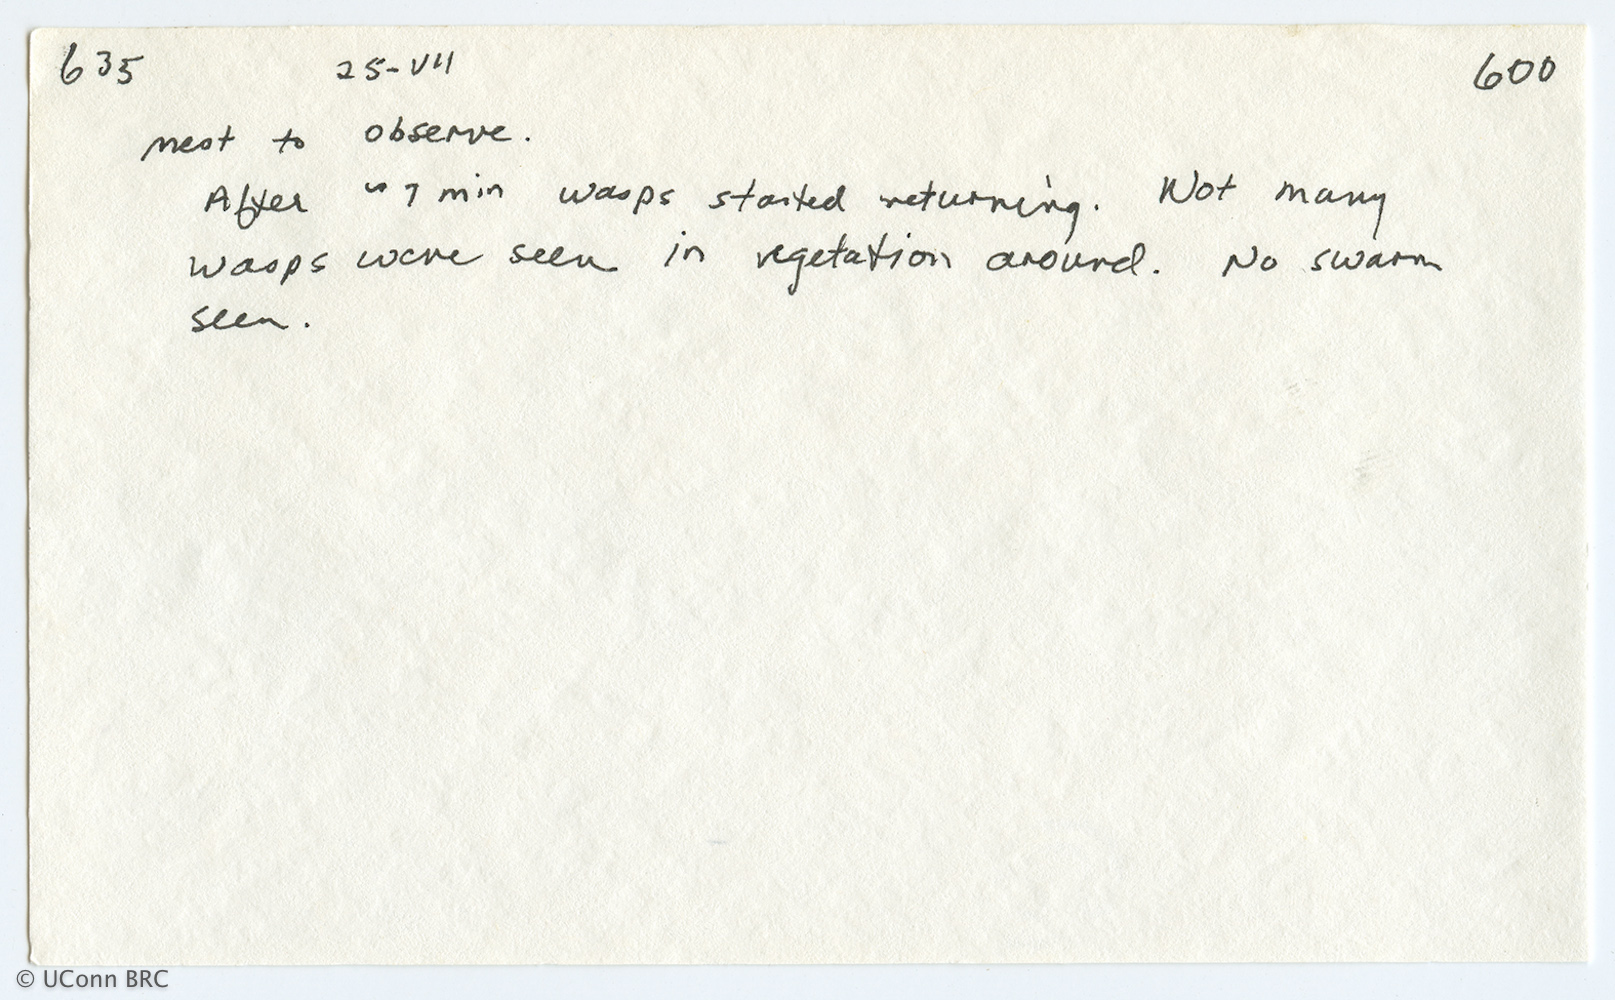 635 25-VII 600
nest to observe.
After ~ 7 min wasps started returning. Not many
wasps were seen in vegetation around. No swarm
seen.
© UConn BRC